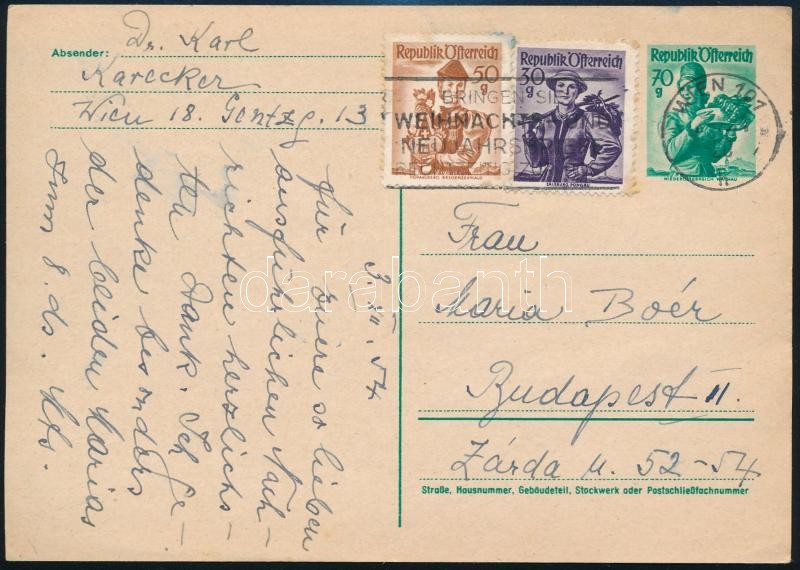 Absender: Dr. Karl
Karecker
Wien 18. Gentzg. 13
Republik Österreich
50
g
VORARLBERG BREGENZERWALD
Republik Österreich
30
g
SALZBURG PONGAU
Republik Österreich
70
g
NIEDERÖSTERREICH WACHAU
BRINGEN SIE
WEIHNACHTS
NEUJAHRS
WIEN 101
3. 54
Für Euere so lieben
ausführlichen Nach-
richten herzlichs-
ten Dank. Ich ge-
denke besonders
der beiden Marias
zum 8. ds. Mts.
Frau
Maria Boér
Budapest II.
Zárda u. 52-54
Straße, Hausnummer, Gebäudeteil, Stockwerk oder Postschließfachnummer
darabanth